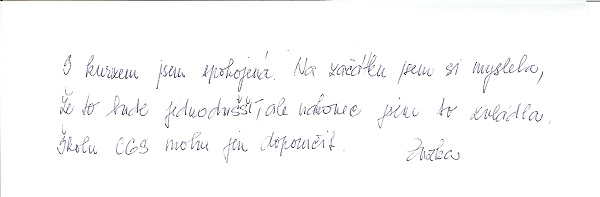 S kurzem jsem spokojená. Na začátku jsem si myslela,
že to bude jednodušší, ale nakonec jsem to zvládla.
Školu CGS mohu jen doporučit. Zuzka